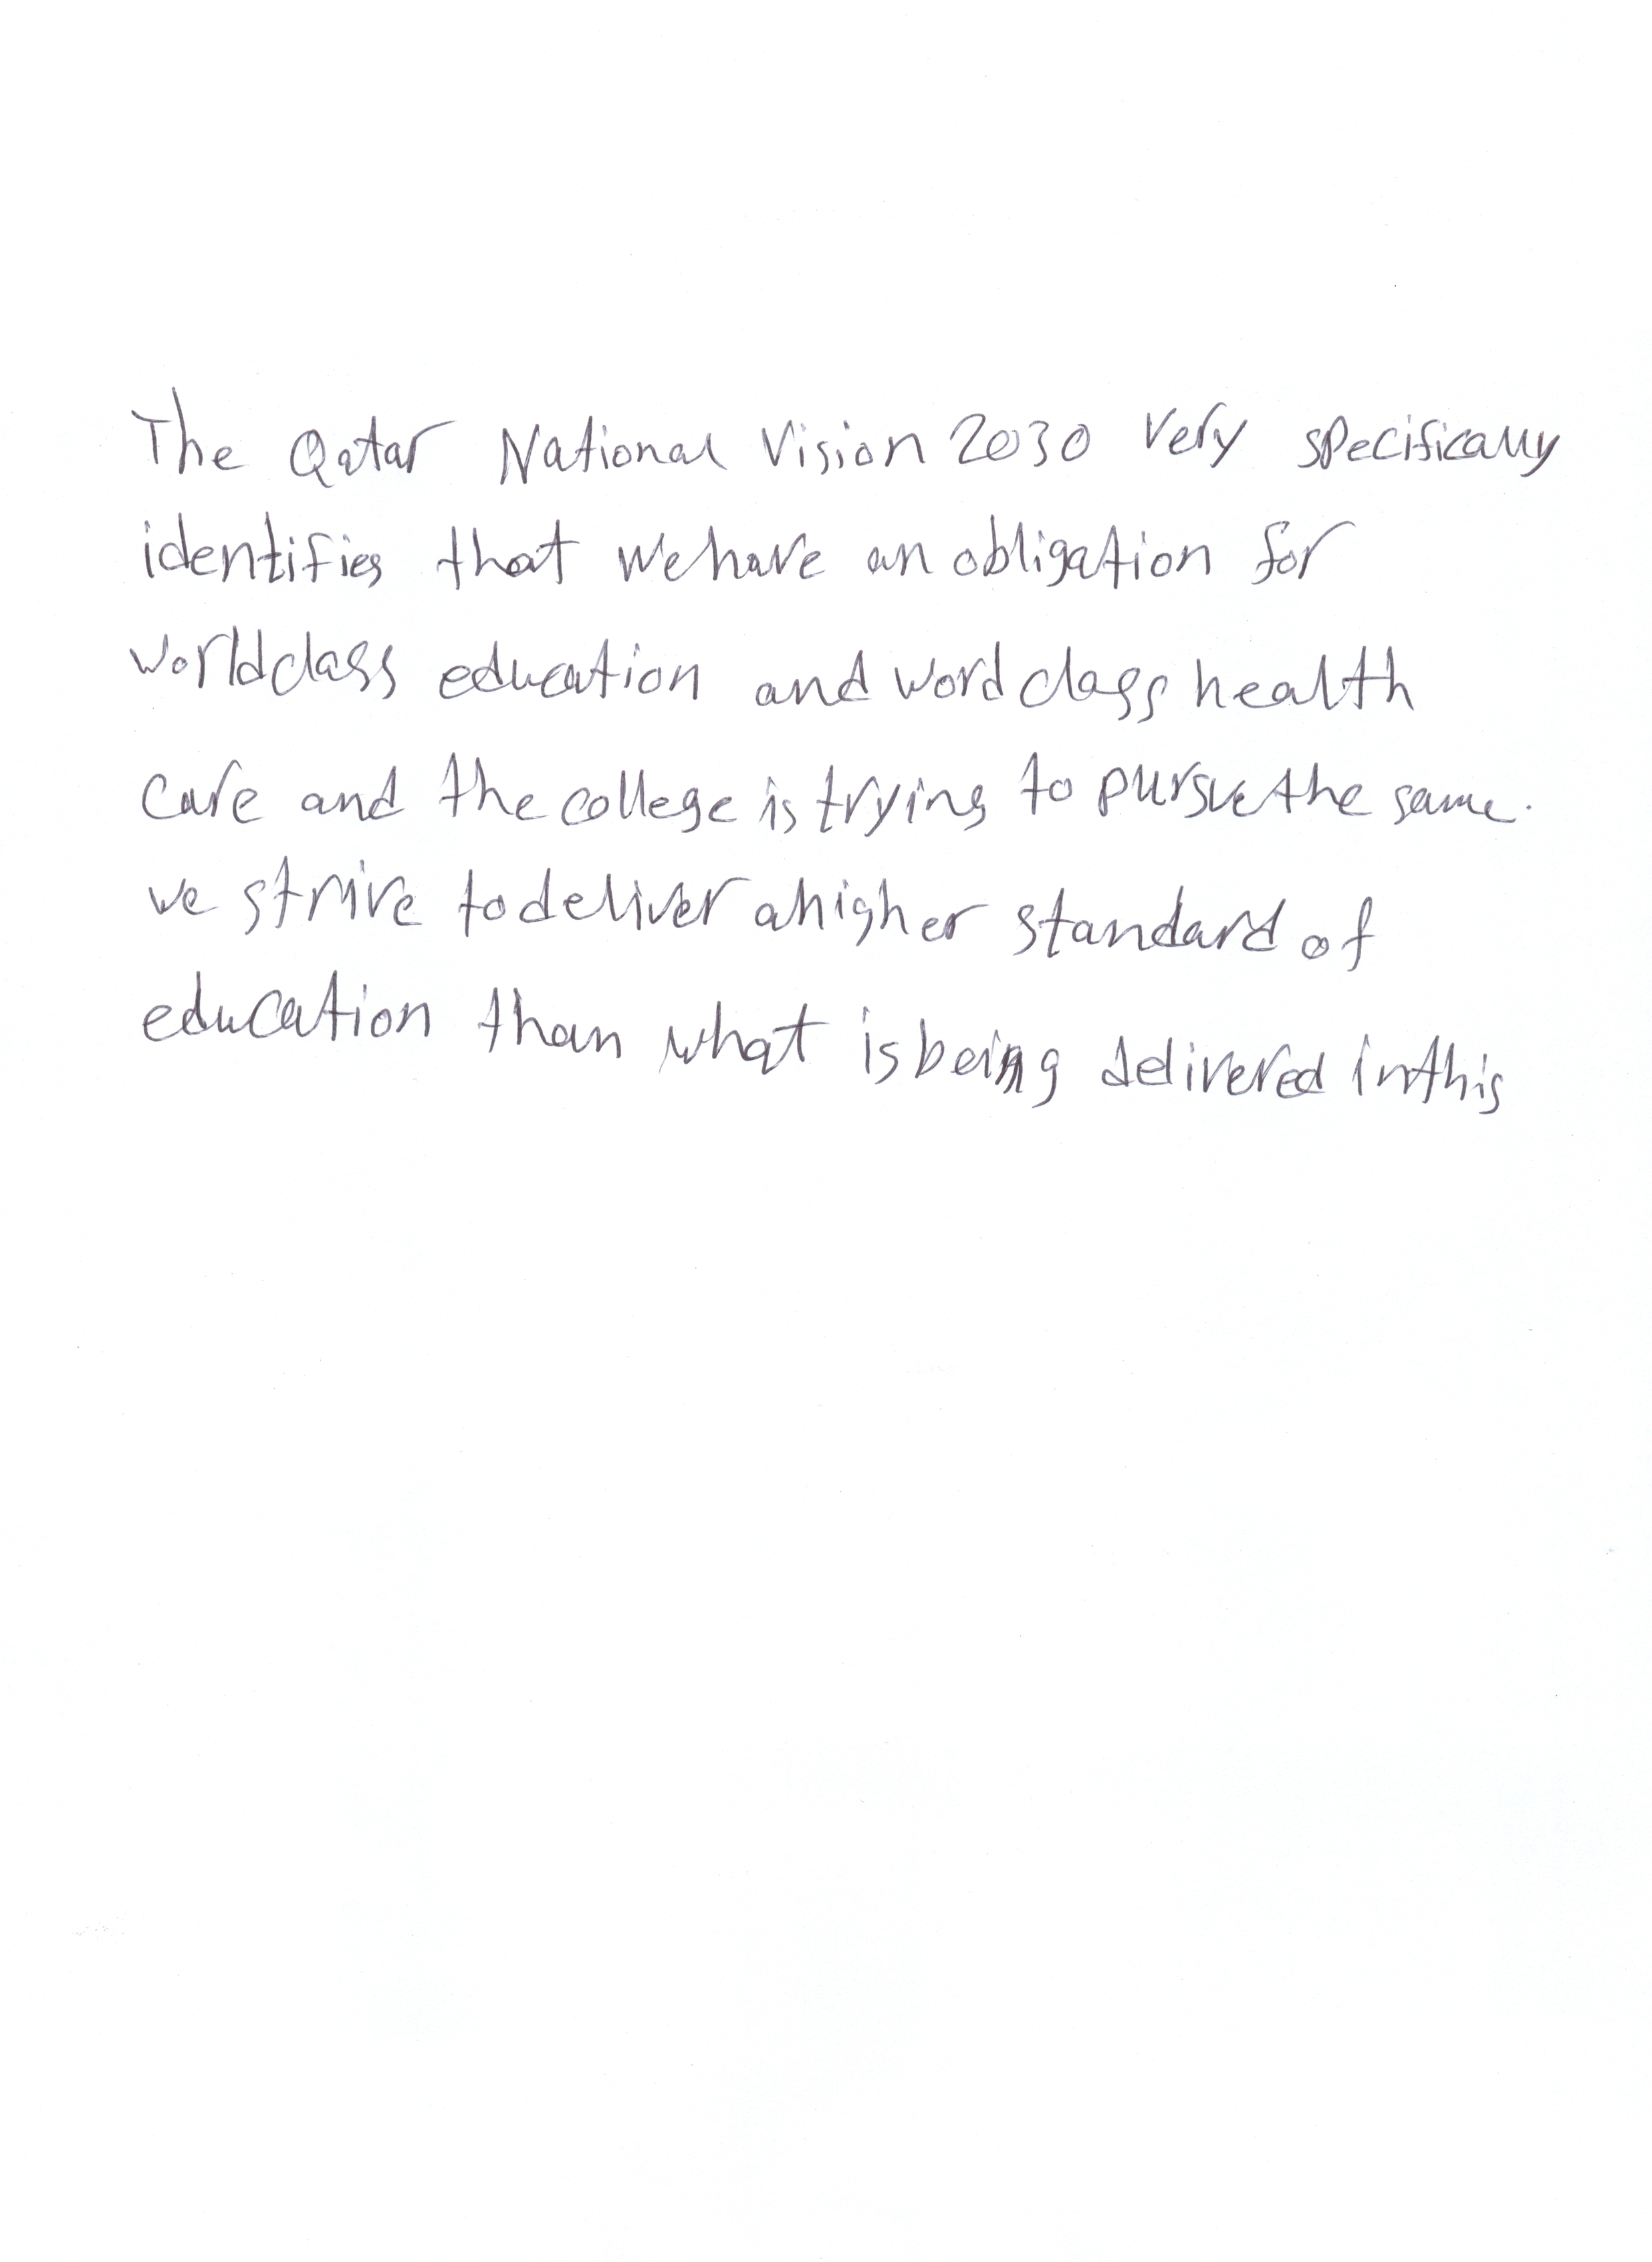 The Qatar National Vision 2030 very specifically
identifies that we have an obligation for
world class education and word class health
care and the college is trying to pursue the same.
we strive to deliver a higher standard of
education than what is being delivered in this